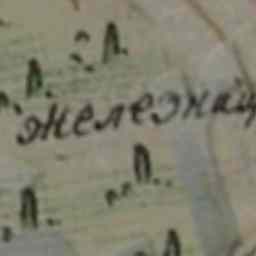 железнац